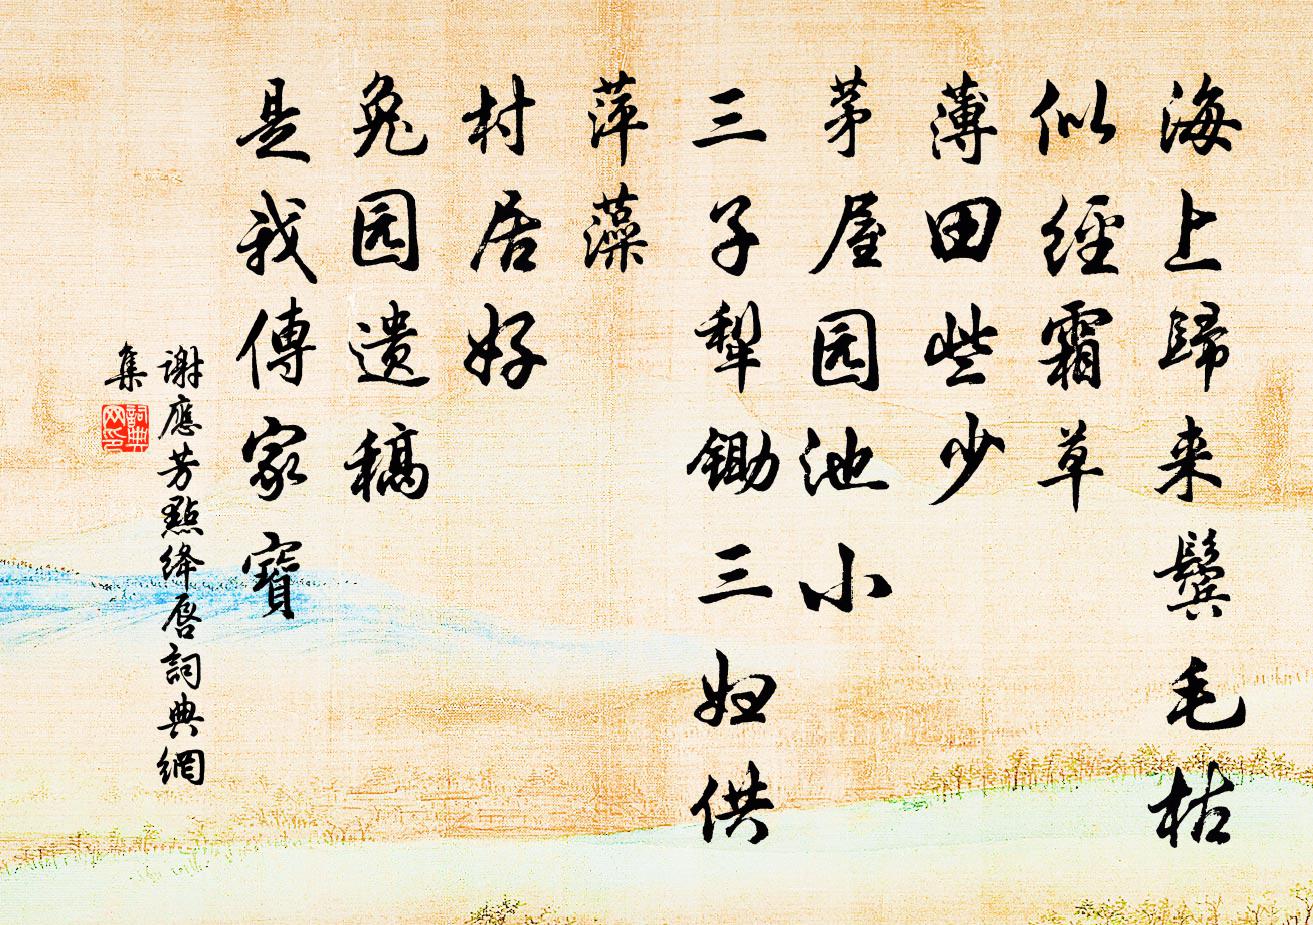 海上歸来鬓毛枯
似經霜草
薄田些少
茅屋园池小
三子犁锄三妇供
萍藻
村居好
兔园遗稿
是我傳家寶
谢應芳點绛唇詞典網
集
詞典
网印